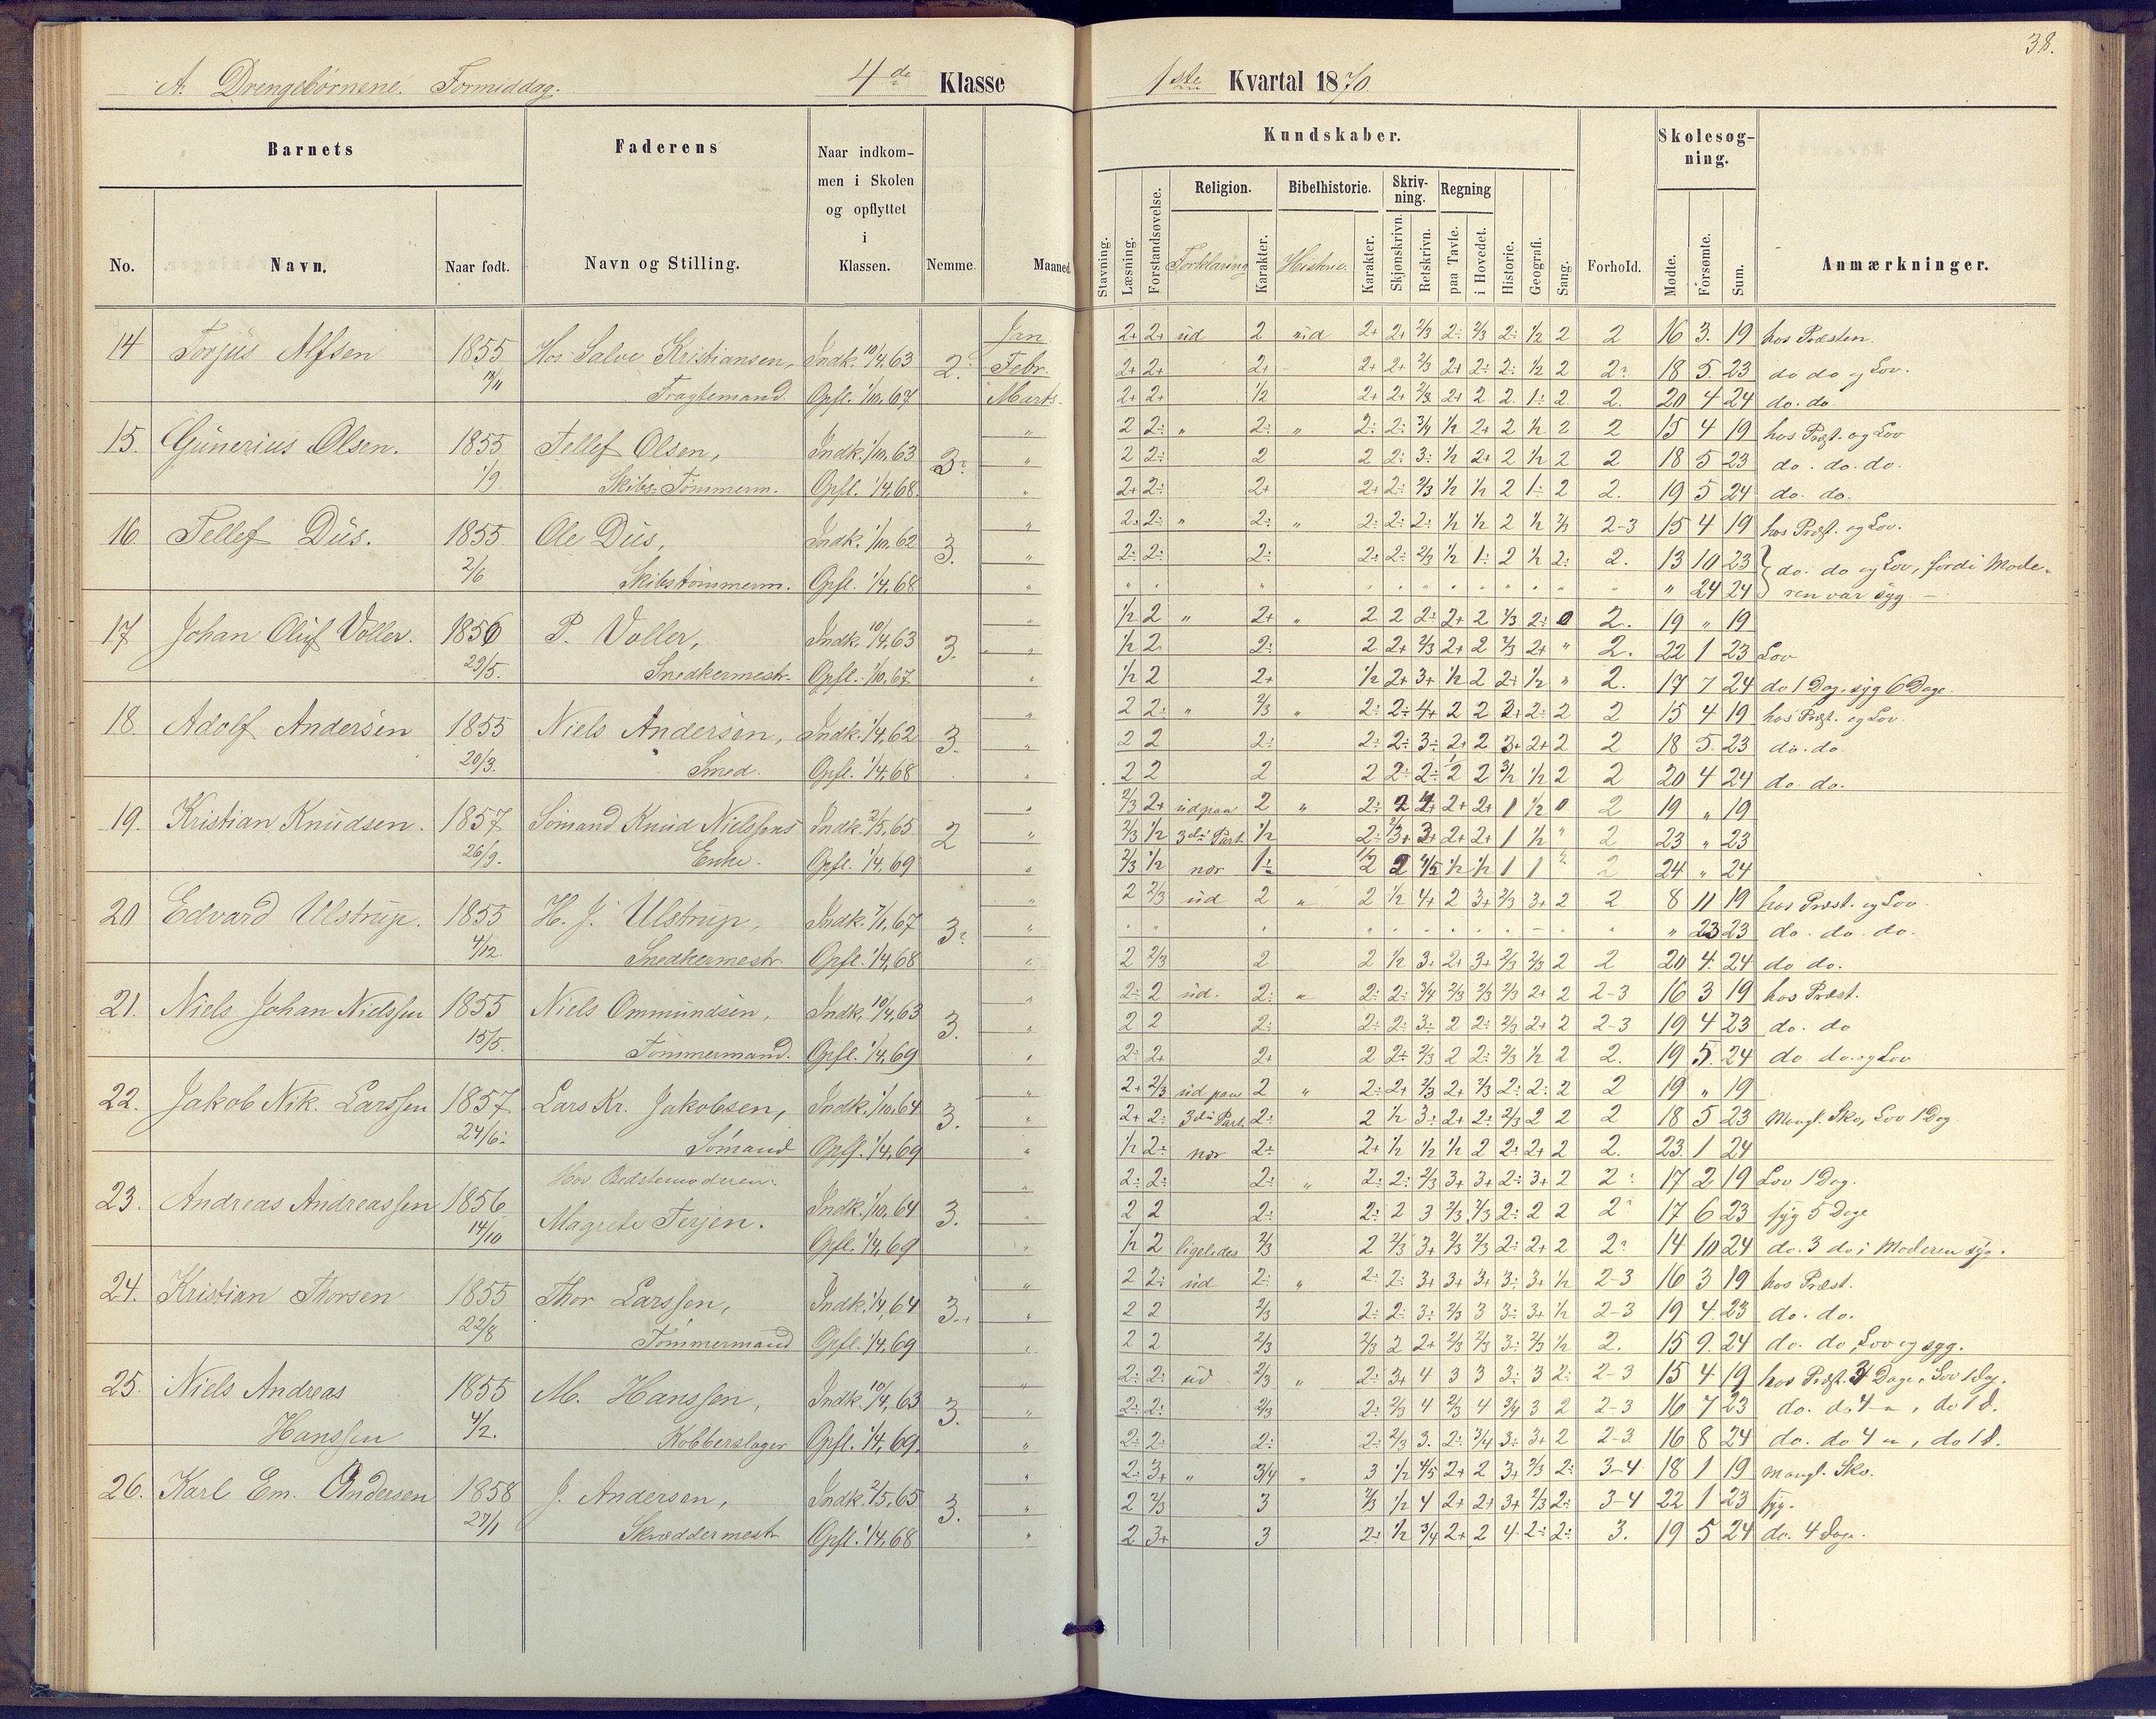 38.
A. Drengebørnene. Formiddag. 4de Klasse 1ste Kvartal 1870.
Barnets Faderens Naar indkom- Kundskaber. Skolesøg-
men i Skolen ning.
og opflyttet Religion. Bibelhistorie. Skriv- Regning
i ning.
No. Navn. Naar født. Navn og Stilling. Klassen. Nemme Maaned. Stavning. Læsning. Forstandsøvelse. Forklaring Karakter. Karakter. Skjønskrivn. Retskrivn. paa Tavle. i Hovedet. Historie. Geografi. Sang. Forhold. Mødte. Forsømte. Sum. Anmærkninger.
14 Torjus Alfsen 1855 Hos Salve Kristiansen, Indk. 10/4,63 2. Jan. 2+ 2+ ud 2 2+ 2+ 2/3 2: 2/3 2: 1/2 2 2 16 3. 19 hos Præsten.
13/11 Fragtemand. Opfl. 1/10,67 Febr. 2+ 2+ 2+ 2+ 2+ 2/3 2+ 2: 2: 1/2 2 2: 18 5. 23 do do og Lov.
Marts. 2+ 2+ 1/2 2+ 2+ 2/3 2+ 2 2. 1: 2 2. 20 4 24 do. do
15. Gunerius Olsen. 1855 Tellef Olsen, Indk. 1/10,63 3: " 2 2: " 2: " 2: 2: 3/4 1/2 2+ 2 1/2 2 2 15 4 19 hos Præst. og Lov
1/9 Skibs-Tømmerm. Opfl. 1/4,68 " 2 2: 2 2 2: 3: 1/2 2+ 2 1/2 2 2 18 5 23 do. do. do.
" 2+ 2: 2+ 2+ 2: 2/3 1/2 1/2 2 1: 2 2. 19 5 24 do. do.
16. Tellef Dus. 1855 Ole Dus, Indk. 1/10,62 3. " 2: 2: " 2: " 2: 2: 2: 1/2 1/2 2 1/2 2/3 2-3 15 4 19 hos Præst. og Lov.
2/6 Skibstømmerm. Opfl. 1/4,68 " 2: 2: 2: 2: 2: 2/3 1/2 1: 2 1/2 2: 2. 13 10 23 do. do og Lov, fordi Mode-
" " 24 24 ren var syg
17 Johan Oluf Voller. 1856 P. Voller, Indk. 10/4,63 3. " 1/2 2 " 2+ " 2 2 2: 2+ 2 2/3 2: 0 2. 19 " 19
29/5. Snedkermestr. Opfl. 1/10,67 " 1/2 2. 2: 2 2+ 2/3 2+ 2 2/3 2+ " 2. 22 1 23 Lov
" 1/2 2 2+ 1/2 2+ 3+ 1/2 2 2+ 1/2 " 2. 17 7 24 do 1 Dag, syg 6 Dage.
18. Adolf Andersen 1855 Niels Andersen, Indk. 1/4,62 3. " 2 2: " 2/3 " 2: 2: 4+ 2 2 3+ 2: 2 2 15 4 19 hos Præst. og Lov.
20/3. Smed. Opfl. 1/4,68 " 2 2 2: 2: 2: 3: 2+ 2 3+ 2+ 2 2 18 5. 23 do. do
" 2 2 2 2 2: 2: 1/2 2 3/2 1/2 2 2 20 4 24 do. do.
19. Kristian Knudsen. 1857 Sømand Knud Nielssens Indk. 2/5,65 2 " 2/3 2+ ud paa 2 " 2: 2 4+ 2+ 2+ 1 1/2 0 2 19 " 19
26/9. Enke. Opfl. 1/4,69 " 2/3 1/2 3die Part. 1/2 2: 2/3+ 3+ 2+ 2+ 1 1/2 " 2 23 " 23
" 2/3 1/2 nær 1: 1/2 2 4/5 1/2 1/2 1 1 " 2 24 " 24
20 Edvard Ulstrup. 1855 H. J. Ulstrup, Indk. 7/1,67 3: " 2 2/3 ud 2 " 2 1/2 4+ 2 3+ 2/3 3+ 2 2 8 11 19 hos Præst. og Lov
4/12. Snedkermestr. Opfl. 1/4,68 " " 23 23 do. do. do.
" 2 2/3 2 2 1/2 3. 2+ 3+ 2/3 2/3 2 2 20 4. 24 do do.
21. Niels Johan Nielssen 1855 Niels Ommundsen, Indk. 10/4,63 3. " 2: 2 ud. 2: " 2: 2: 3/4 2/3 2/3 2/3 2+ 2 2-3 16 3 19 hos Præst.
15/5. Tømmermand. Opfl. 1/4,69 " 2 2 2: 2: 2: 3: 2 2: 2/3 2+ 2 2-3 19 4 23 do. do
" 2: 2+ 2+ 2 2+ 2/3 2 2: 2/3 1/2 2 2. 19 5. 24 do. do. og Lov
22. Jakob Nik. Larssen 1857 Lars Kr. Jakobsen, Indk. 1/10,64 3. " 2+ 2/3 ud paa 2 " 2: 2+ 2/3 2+ 2/3 2: 2: 2 2 19 " 19
24/6: Sømand Opfl. 1/4,69 " 2+ 2: 3die Part. 2: 2 1/2 3: 2+ 2: 2/3 2 2 2 18 5 23 Mangl. Sko, Lov 1 Dag
" 1/2 2: nær 2: 2+ 1/2 1/2 1/2 2 2: 2+ 2 2. 23. 1 24
23. Andreas Andreassen 1856 Hos Bedstemoderen: Indk. 1/10,64 3. " 2: 2: 2: " 2: 2: 2/3 3+ 3+ 2: 3+ 2 2: 17 2 19 Lov 1 Dag.
14/10 Magrete Terjen. Opfl. 1/4,69 " 2 2 2: 2: 2 3 2/3 2/3 2: 2 2 2: 17 6 23 syg 5 Dage
" 1/2 2 ligeledes 2/3 2 2/3 3+ 2/3 2/3 2: 2+ 2 2: 14 10 24 do. 3 do i Moderen syg.
24. Kristian Thorsen 1855 Thor Larssen, Indk. 1/4,64 3. " 2 2: ud 2: " 2: 2: 3+ 3+ 3+ 3: 3+ 1/2 2-3 16 3 19 hos Præst.
22/8 Tømmermand Opfl. 1/4,69 " 2 2 2/3 2: 2: 3: 2/3 3 3: 3+ 1/2 2-3 19 4 23 do. do.
" 2 2 2/3 2/3 2 2+ 2/3 2/3 3: 2/3 1/2 2. 15 9. 24 do. do, Lov og syg.
25. Niels Andreas 1855 M. Hanssen, Indk. 10/4,63 3. " 2: 2: ud 2/3 " 2: 3+ 4 3 3 3: 3 2: 2-3 15 4 19 hos Præst. 3 Dage, Lov 1 Dag.
Hanssen 4/2. Kobberslager Opfl. 1/4,69. " 2: 2: 2/3 2: 2/3 4 2/3 4 3/4 3 2 2-3 16 7 23 do. do 4 , do 1 d.
" 2: 2: 2: 2: 2/3 3. 2: 3/4 3: 3+ 2 2-3. 16 8 24 do. do 4 , do 1 d.
26. Karl Em. Andersen 1858 J. Andersen, Indk. 2/5,65 3. " 2: 3+ " 3/4 " 3 1/2 4/5 2+ 2 3+ 2/3 2: 3-4 18 1 19 Mangl. Sko.
27/1 Skræddermestr Opfl. 1/4,68 " 2 2/3 3 2/3 1/2 4 2+ 2+ 3+ 2/3 2: 3-4 22 1 23 syg.
" 2 3+ 3 2: 1/2 3/4 2+ 2 4 2: 2: 3. 19 5 24 do. 4 Dage.